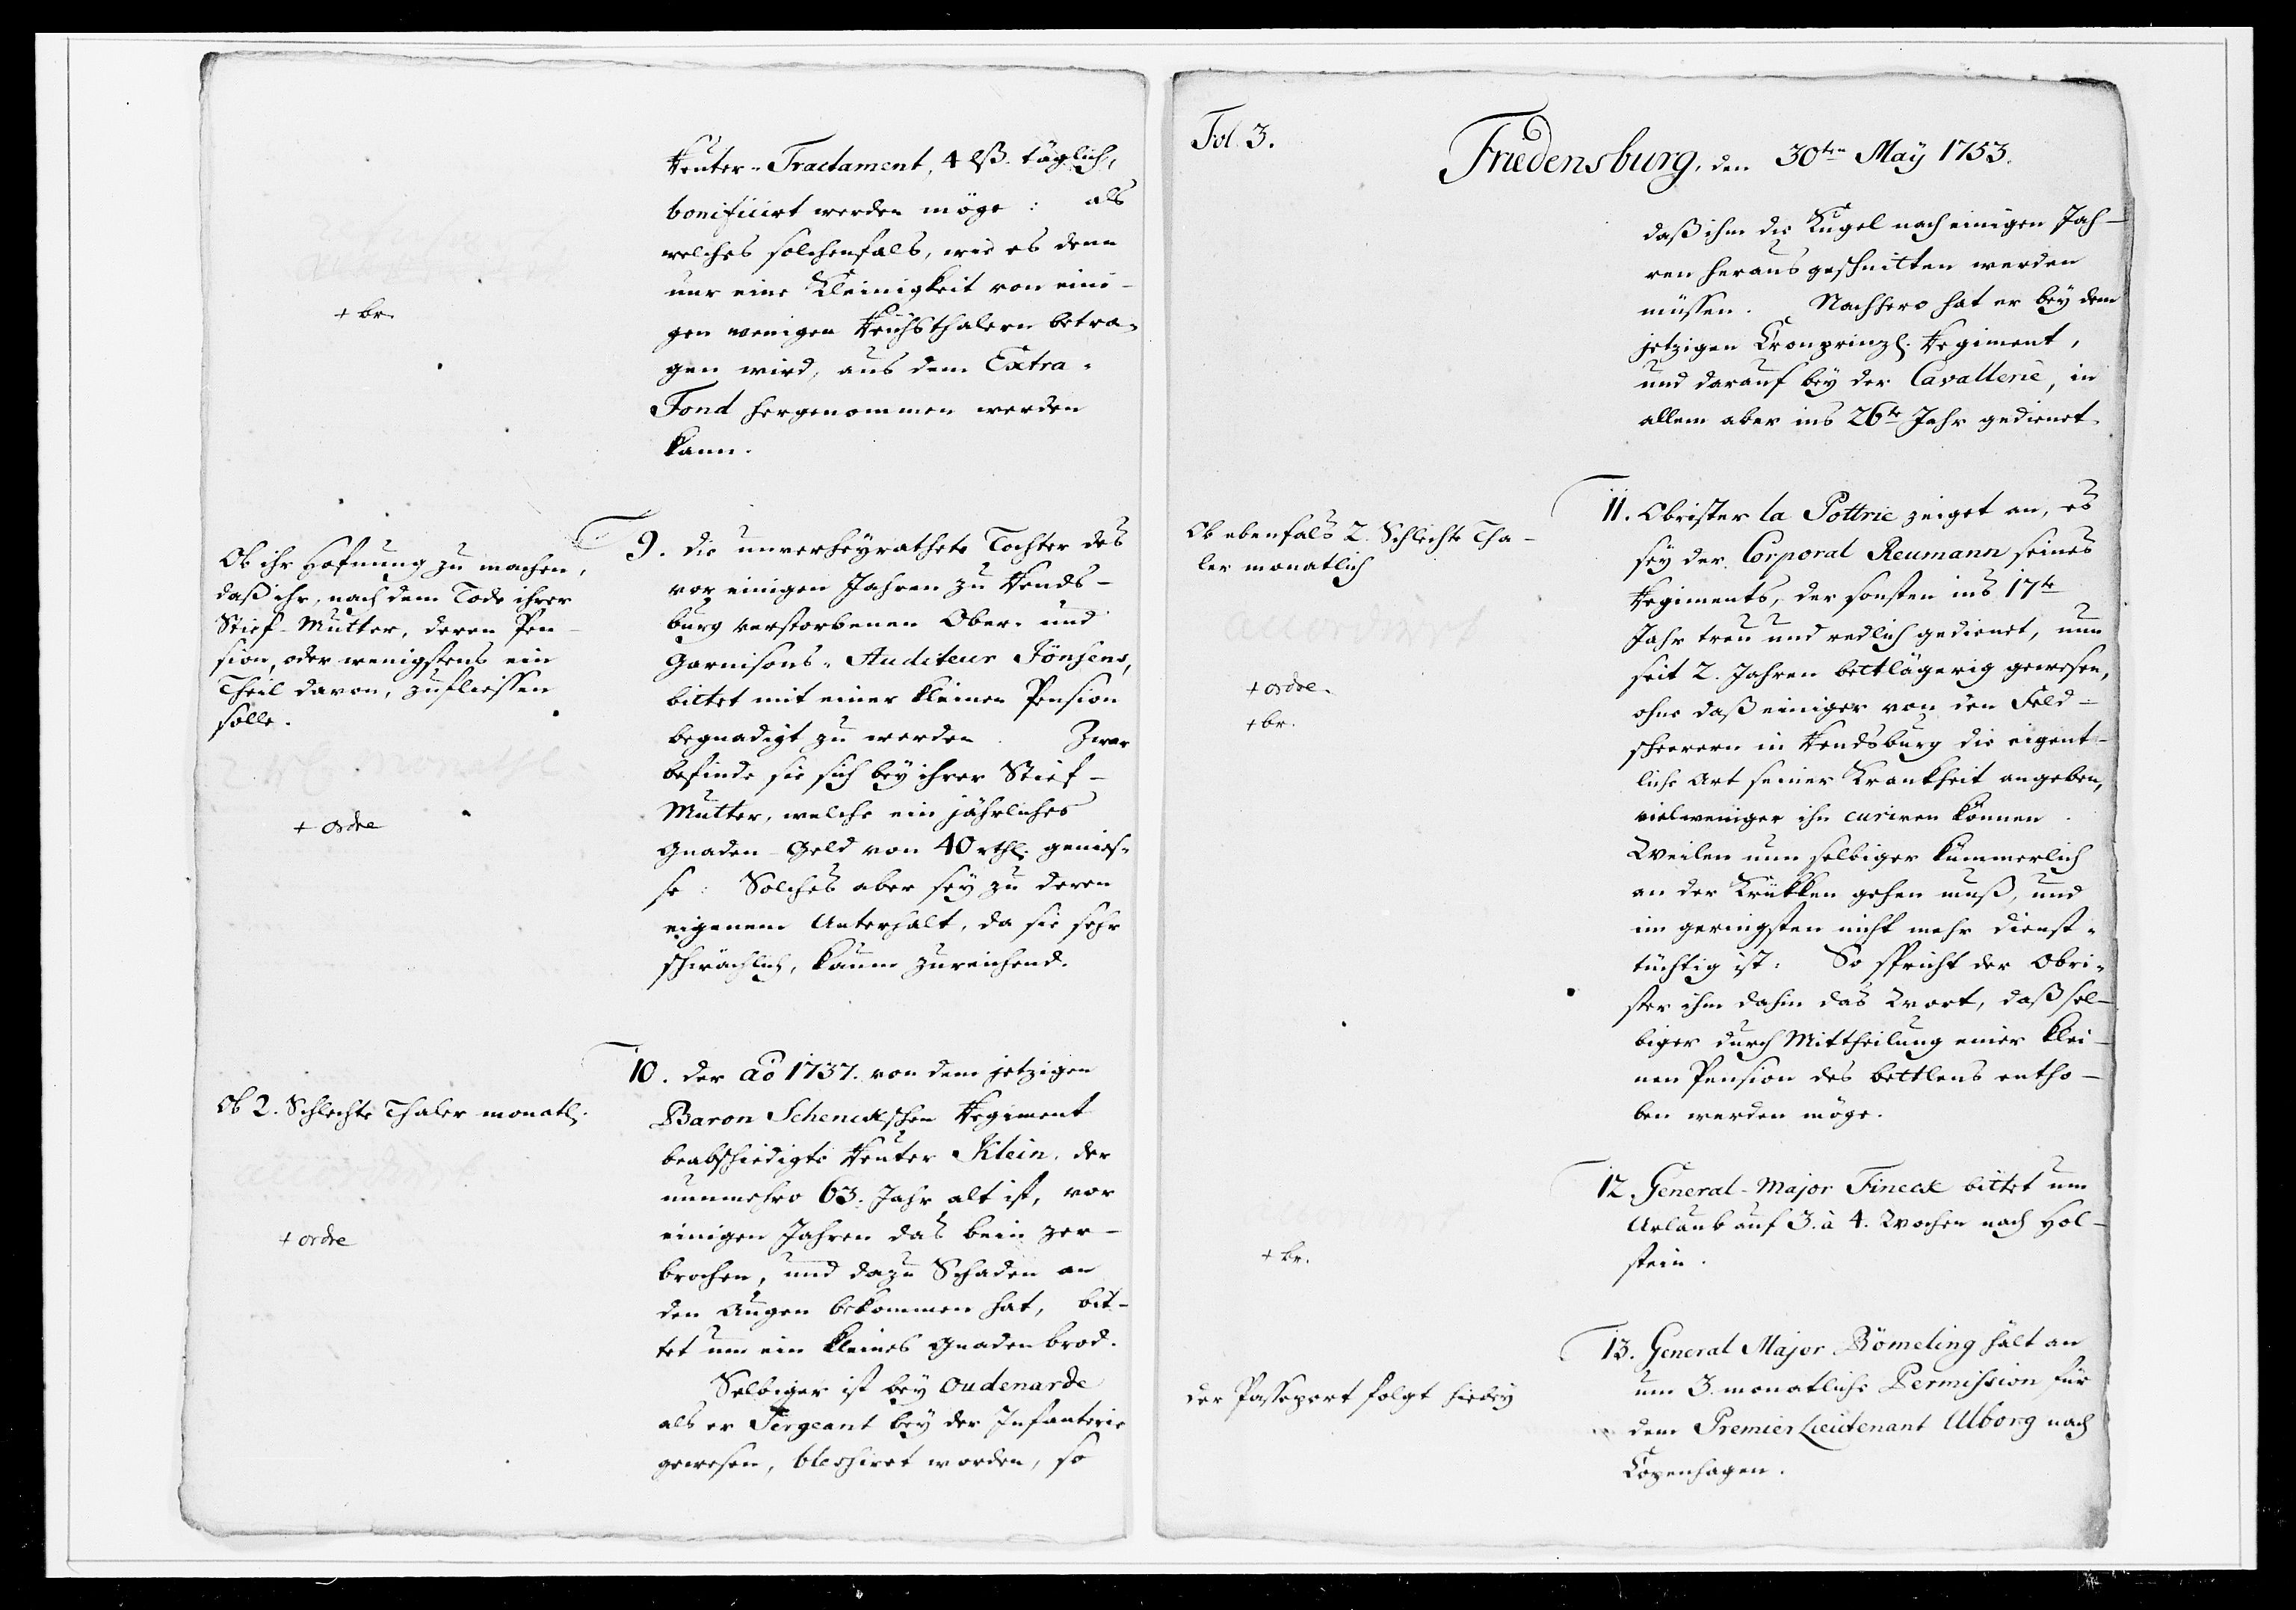 Reuter-Tractament, 4 lß. täglich,
bonificirt werden möge: als
welches solchenfals, wie es denn
nur eine Kleinigkeit von eini-
gen wenigen Reichsthalern betra-
gen wird, aus dem Extra-
Fond hergenommen werden
kann.
+ br.
9. die unverheyrathete Tochter des
vor einigen Jahren zu Rends-
burg verstorbenen Ober- und
Garnisons-Auditeur Jönsens,
bittet mit einer kleinen Pension
begnadigt zu werden. Zwar
befinde sie sich bey ihrer Stief-
Mutter, welche ein jährliches
Gnaden-Geld von 40 rthl. genies-
se: Solches aber sey zu deren
eigenem Unterhalt, da sie sehr
schwächlich, kaum zureichend.
Ob ihr Hofnung zu machen,
daß ihr, nach dem Tode ihrer
Stief-Mutter, deren Pen-
sion, oder wenigstens ein
Theil davon, zufliessen
solle.
monathl.
+ ordre
10. der aõ 1737. von dem jetzigen
Baron Schenckschen Regiment
beabschiedigte Reuter Klein, der
nunmehro 63. Jahr alt ist, vor
einigen Jahren das bein zer-
brochen, und dazu Schaden an
den Augen bekommen hat, bit-
tet um ein kleines Gnadenbrod.
Selbiger ist bey Oudenarde
als er Sergeant bey der Infanterie
gewesen, blessiret worden, so
Ob 2. Schlechte Thaler monatl.
accordirt
+ ordre
Fol. 3.
Friedensburg, den 30ten Maÿ 1753.
daß ihm die Kugel nach einigen Jah-
ren heraus geschnitten werden
müssen. Nachhero hat er bey dem
jetzigen Kronprinzl. Regiment,
und darauf bey der Cavallerie, in
allem aber ins 26te Jahr gedienet.
11. Obrister la Pottrie zeiget an, es
sey der Corporal Reumann seines
Regiments, der sonsten ins 17te
Jahr treu und redlich gedienet, nun
seit 2. Jahren bettlägerig gewesen,
ohne daß einiger von den Feld-
scheerern in Rendsburg die eigent-
liche Art seiner Krankheit angeben,
vielweniger ihn curiren können.
Weilen nun selbiger kümmerlich
an der Krükken gehen muß, und
im geringsten nicht mehr dienst-
tüchtig ist: So spricht der Obri-
ster ihm dahin das Wort, daß sel-
biger durch Mittheilung einer klei-
nen Pension des bettlens entho-
ben werden möge.
Ob ebenfals 2. Schlechte Tha-
ler monatlich
accordirt
+ ordre.
+ br.
12. General-Major Finecke bittet um
Urlaub auf 3. à 4. Wochen nach Hol-
stein.
accordirt
+ br.
13. General Major Römeling hält an
um 3. monatliche Permission für
dem Premier Lieutenant Alborg nach
Copenhagen.
der Passeport folgt hiebey